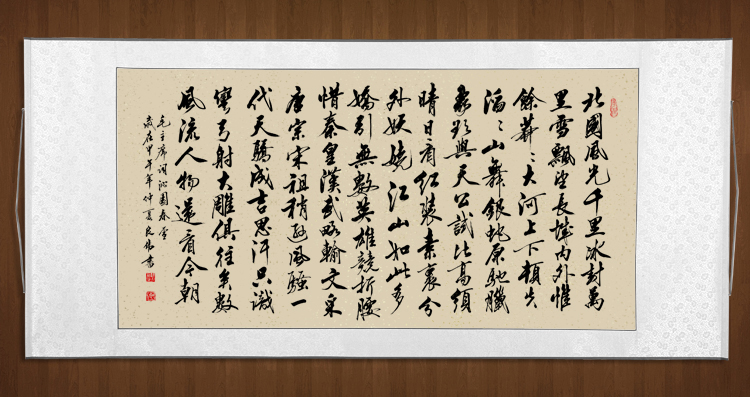 北國風光千里冰封萬
里雪飄望長城內外惟
餘莽〻大河上下頓失
滔〻山舞銀蛇原馳臘
象欲與天公試比高須
晴日看紅裝素裹分
外妖嬈江山如此多
嬌引無數英雄競折腰
惜秦皇漢武略輸文采
唐宗宋祖稍遜風騷一
代天驕成吉思汗只識
彎弓射大雕俱往矣數
風流人物還看今朝
毛主席詞沁園春雪
歲在甲午年仲夏書